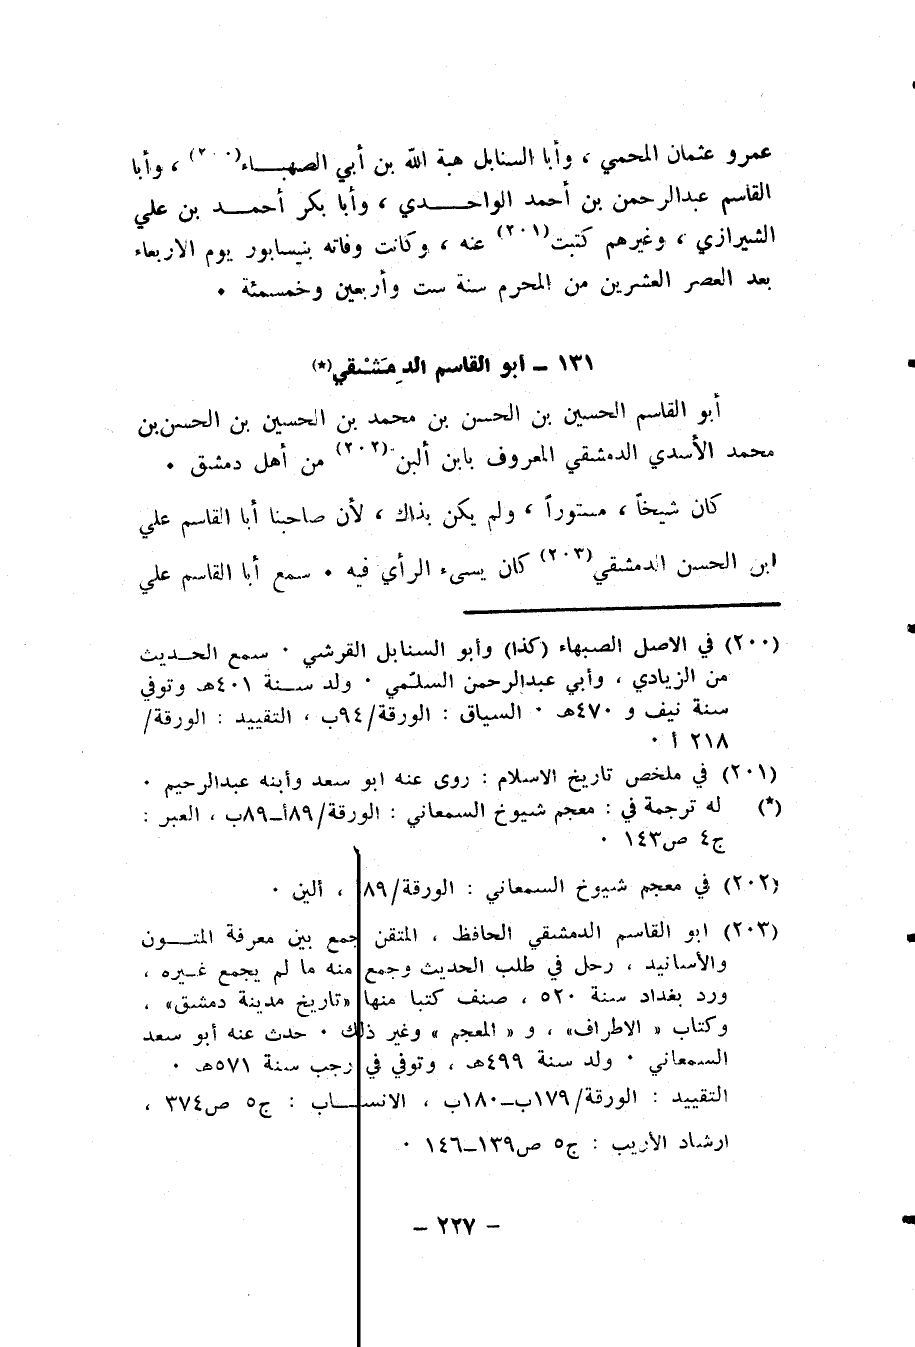 عمرو عثمان المحمي ، وأبا السنابل هبة الله بن أبي الصهبـــاء(٢٠٠) ، وأبا
القاسم عبدالرحمن بن أحمد الواحـــدي ، وأبا بكر أحمـــد بن علي
الشيرازي ، وغيرهم كتبت(٢٠١) عنه ، وكانت وفاته بنيسابور يوم الاربعاء
بعد العصر العشرين من المحرم سنة ست وأربعين وخمسمئة ٠
١٣١ ــ أبو القاسم الدِمَشْقي(*)
أبو القاسم الحسين بن الحسن بن محمد بن الحسين بن الحسن بن
محمد الأسدي الدمشقي المعروف بابن ألبن(٢٠٢) من أهل دمشق ٠
كان شيخاً ، مستوراً ، ولم يكن بذاك ، لأن صاحبنا أبا القاسم علي
ابن الحسن الدمشقي(٢٠٣) كان يسىء الرأي فيه ٠ سمع أبا القاسم علي
(٢٠٠) في الاصل الصبهاء (كذا) وأبو السنابل القرشي ٠ سمع الحـديث
من الزيادي ، وأبي عبدالرحمن السلّمي ٠ ولد ســنة ٤٠١هـ وتوفي
سنة نيف و ٤٧٠هـ ٠ السياق : الورقة/٩٤ب ، التقييد : الورقة/
٢١٨ أ ٠
(٢٠١) في ملخص تاريخ الاسلام : روى عنه ابو سعد وأبنه عبدالرحيم ٠
(*) له ترجمة في : معجم شيوخ السمعاني : الورقة/٨٩أــ٨٩ب ، العبر :
ج٤ ص١٤٣ ٠
(٢٠٢) في معجم شيوخ السمعاني : الورقة/٨٩ ، ألين ٠
(٢٠٣) ابو القاسم الدمشقي الحافظ ، المتقن جمع بين معرفة المتـــون
والأسانيد ، رحل في طلب الحديث وجمع منه ما لم يجمع غـيره ،
ورد بغداد سنة ٥٢٠ ، صنف كتبا منها «تاريخ مدينة دمشق» ،
وكتاب « الاطراف» ، و « المعجم » وغير ذلك ٠ حدث عنه أبو سعد
السمعاني ٠ ولد سنة ٤٩٩هـ ، وتوفي في رجب سنة ٥٧١هـ ٠
التقييد : الورقة/١٧٩بــ١٨٠ب ، الانســـاب : ج٥ ص٣٧٤ ،
ارشاد الأريب : ج٥ ص١٣٩ــ١٤٦ ٠
– ٢٢٧ –